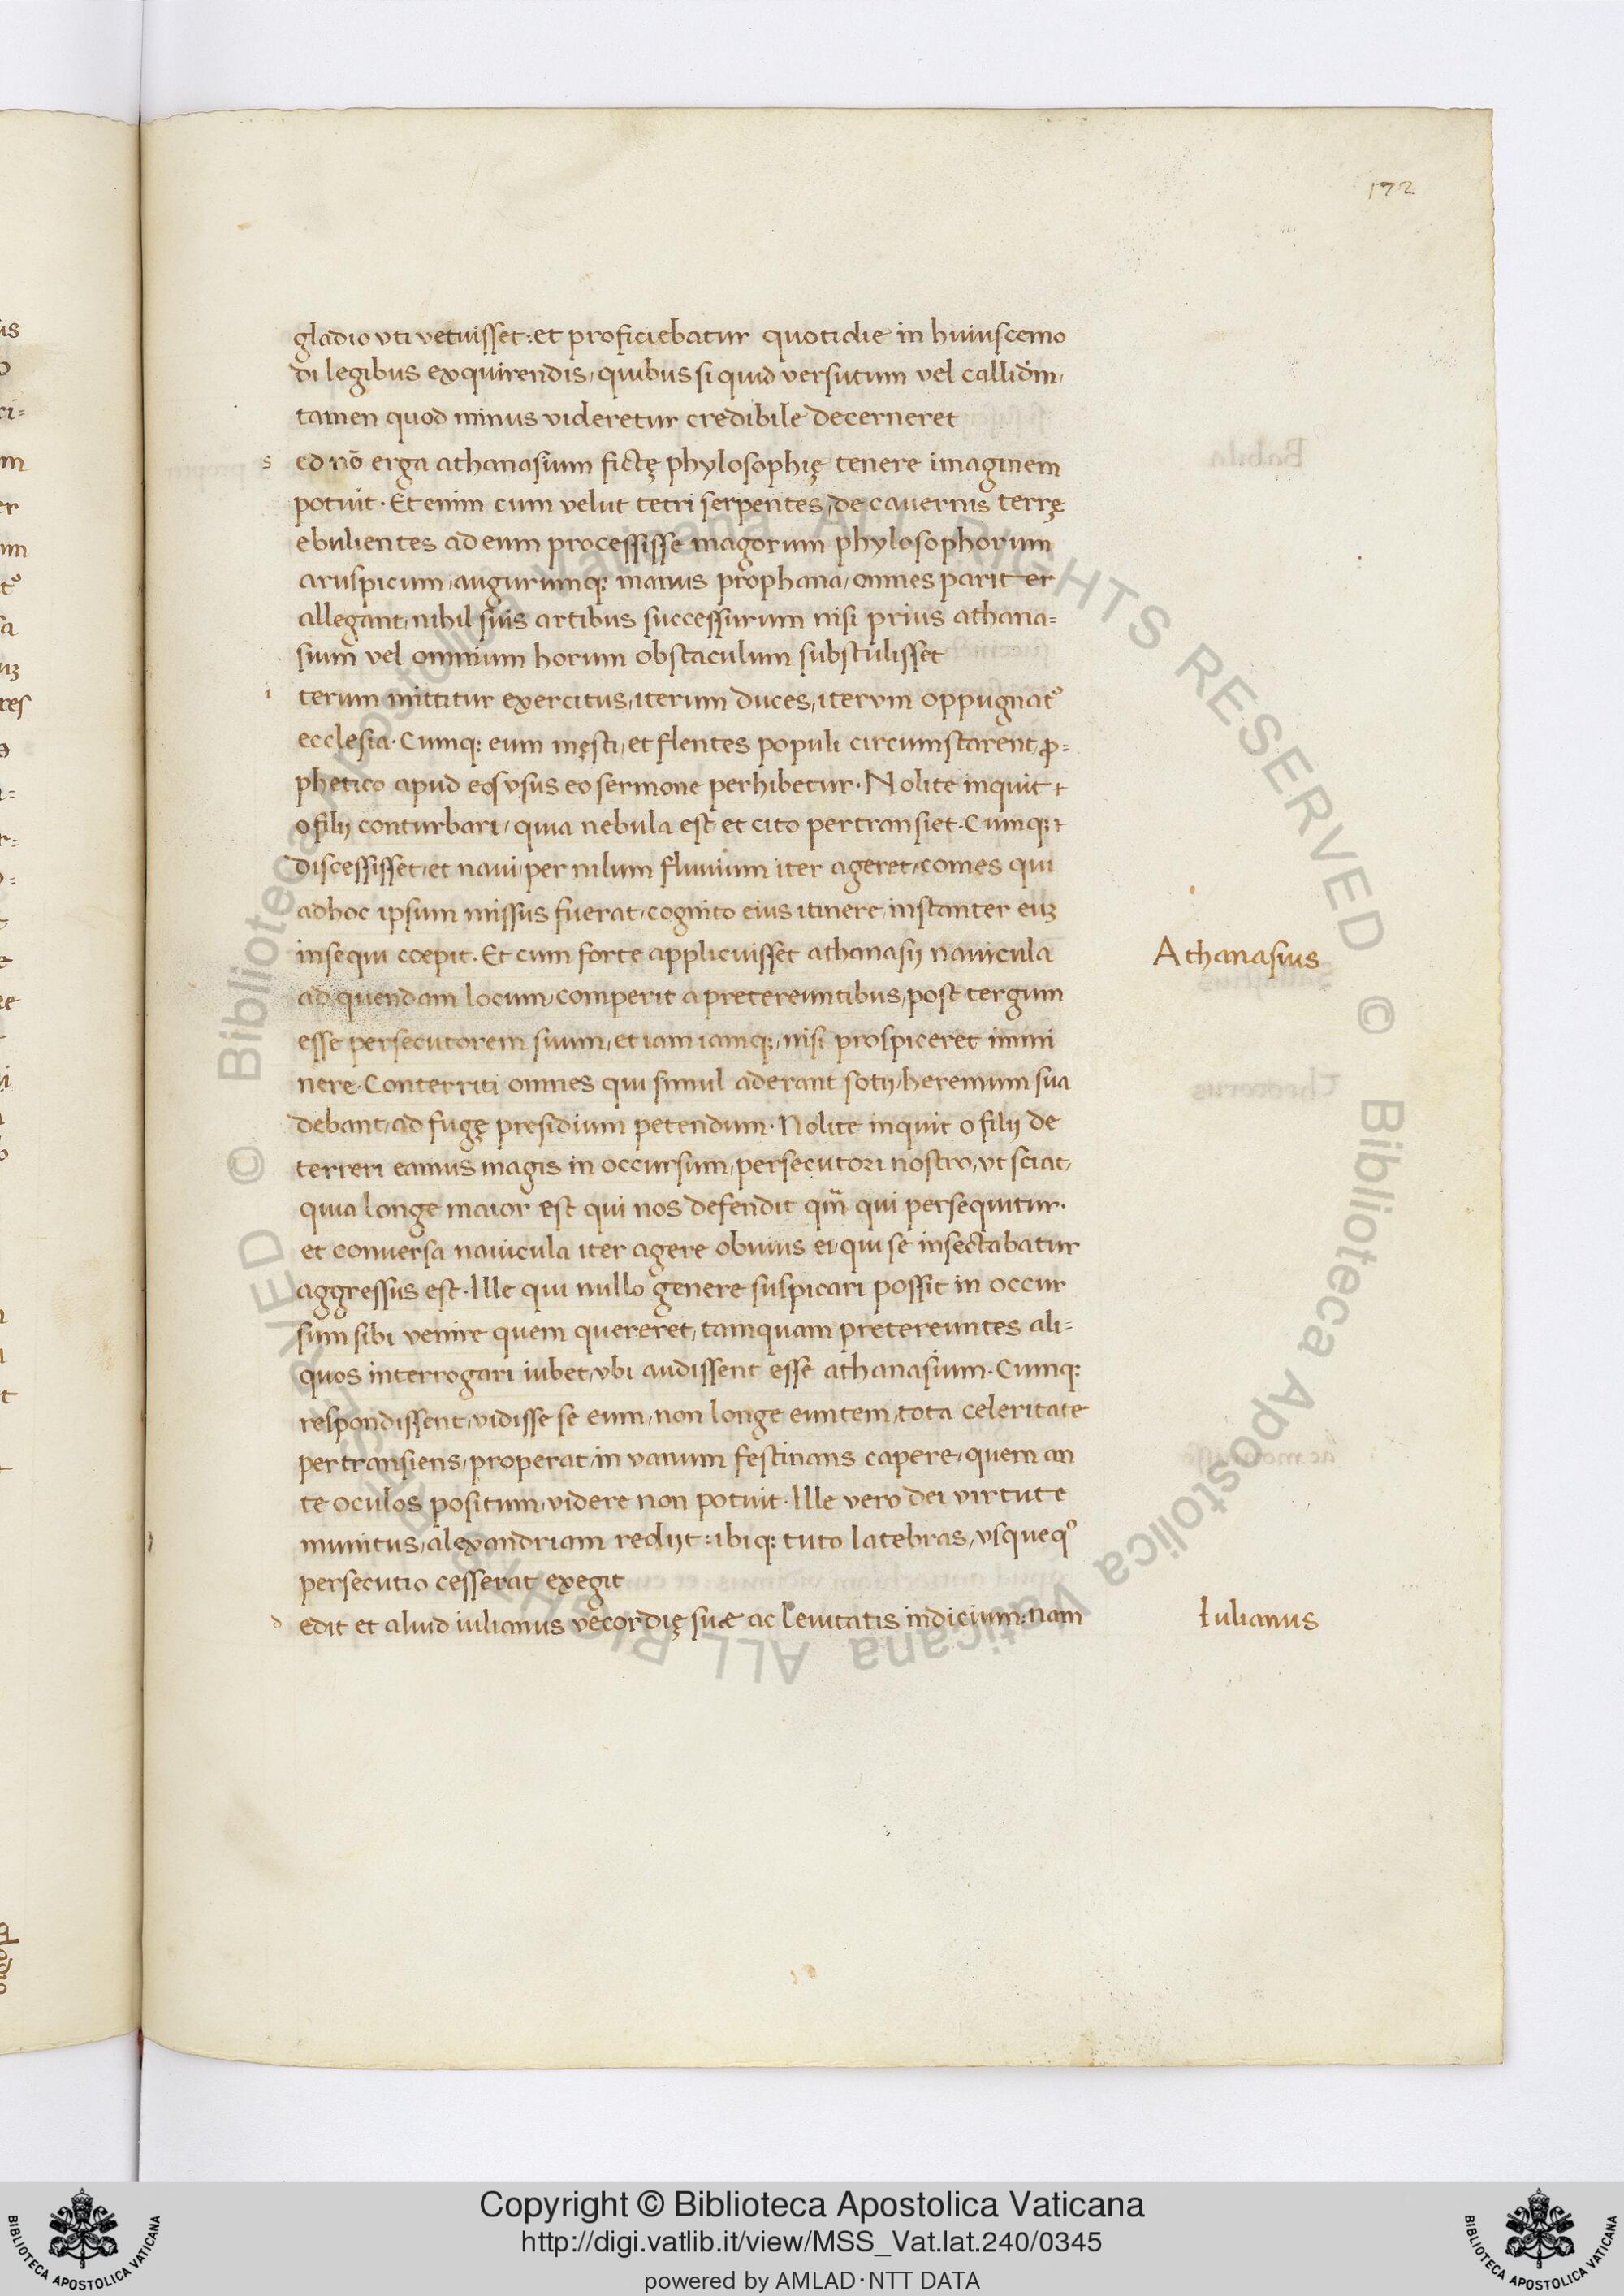 172
gladio vti vetuisset: et proficiebatur quotidie in huiuscemo
di legibus exquirendis, quibus si quid versutum vel callidm̄,
tamen quod minus videretur credibile decerneret
s ed nō erga athanasium fictę phylosophię tenere imaginem
potuit. Et enim cum velut tetri serpentes, de cauernis terrę
ebulientes ad eum processisse magorum phylosophorum
aruspicum, augurumq; manus prophana, omnes pariter
allegant, nihil suis artibus successurum nisi prius athana=
sium vel omnium horum obstaculum substulisset
i terum mittitur exercitus, iterum duces, itervm oppugnat᾽
ecclesia. Cumq; eum męsti, et flentes populi circumstarent, ꝓ=
phetico apud eos vsus eo sermone perhibetur. Nolite inquit
o filij conturbari, quia nebula est et cito pertransiet. Cumq;
discessisset, et naui, per nilum fluuium iter ageret, comes qui
adhoc ipsum missus fuerat, cognito eius itinere, instanter euꝫ
insequi coepit. Et cum forte applicuisset athanasij nauicula
Athanasius
ad quendam locum, comperit a pretereuntibus, post tergum
esse persecutorem suum, et iam iamq;, nisi prospiceret immi
nere. Conterriti omnes qui simul aderant sotij, heremum sua
debant, ad fugę presidium petendum. Nolite inquit o filij de
terreri eamus magis in occursum, persecutori nostro, vt sciat,
quia longe maior est qui nos defendit qm̄ qui persequitur.
et conuersa nauicula iter agere obuius ei, qui se insectabatur
aggressus est. Ille qui nullo genere suspicari possit in occur
sum sibi venire quem quereret, tamquam pretereuntes ali=
quos interrogari iubet, vbi audissent esse athanasium. Cumq;
respondissent, vidisse se eum, non longe euntem, tota celeritate
pertransiens, properat, in vanum festinans capere, quem an
te oculos positum, videre non potuit. Ille vero dei virtute
munitus, alexandriam redijt: ibiq; tuto latebras, vsquequo
persecutio cesserat exegit
d edit et aliud iulianus vecordię suæ ac leuitatis indicium: nam
Iulianus
Copyright © Biblioteca Apostolica Vaticana
http://digi.vatlib.it/view/MSS_Vat.lat.240/0345
powered by AMLAD·NTT DATA
BIBLIOTECA APOSTOLICA VATICANA
BIBLIOTECA APOSTOLICA VATICANA
© Biblioteca Apostolica Vaticana ALL RIGHTS RESERVED © Biblioteca Apostolica Vaticana ALL RIGHTS RESERVED